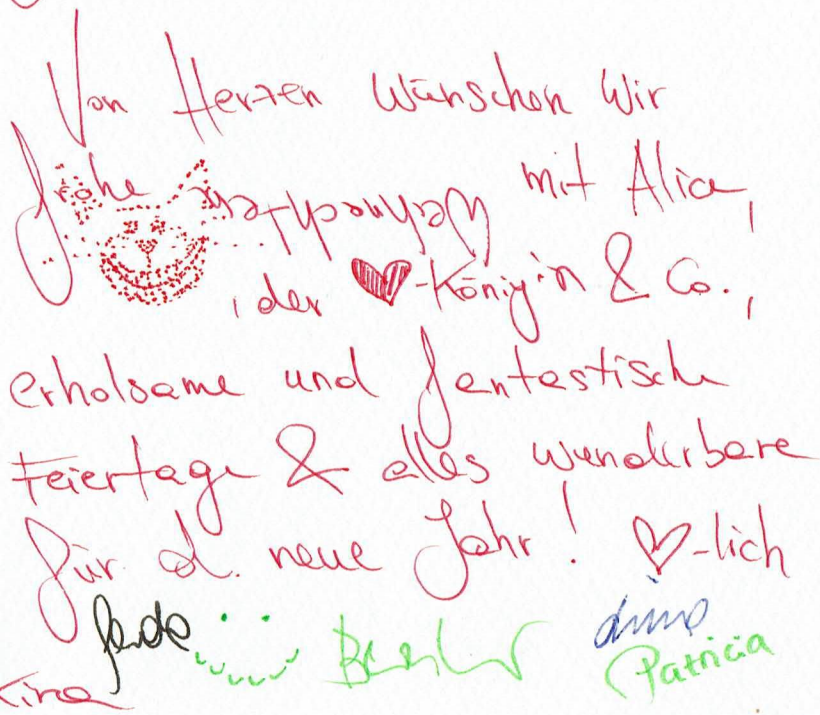 Von Herzen wünschen wir
frohe Weihnachten mit Alice,
der ♥-Königin & Co.,
erholsame und fantastische
Feiertage & alles wunderbare
für d. neue Jahr! ♡-lich
Patricia
Kira